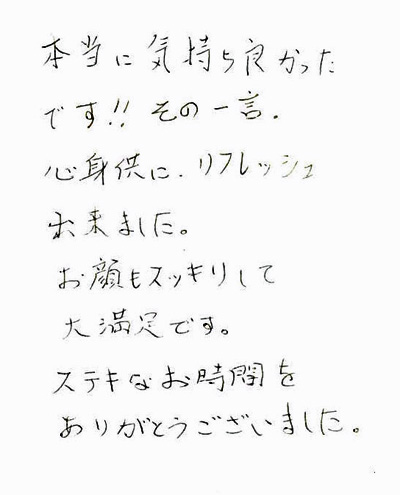 本当に気持ち良かった
です!! その一言.
心身供に、リフレッシュ
出来ました。
お顔もスッキリして
大満足です。
ステキなお時間を
ありがとうございました。